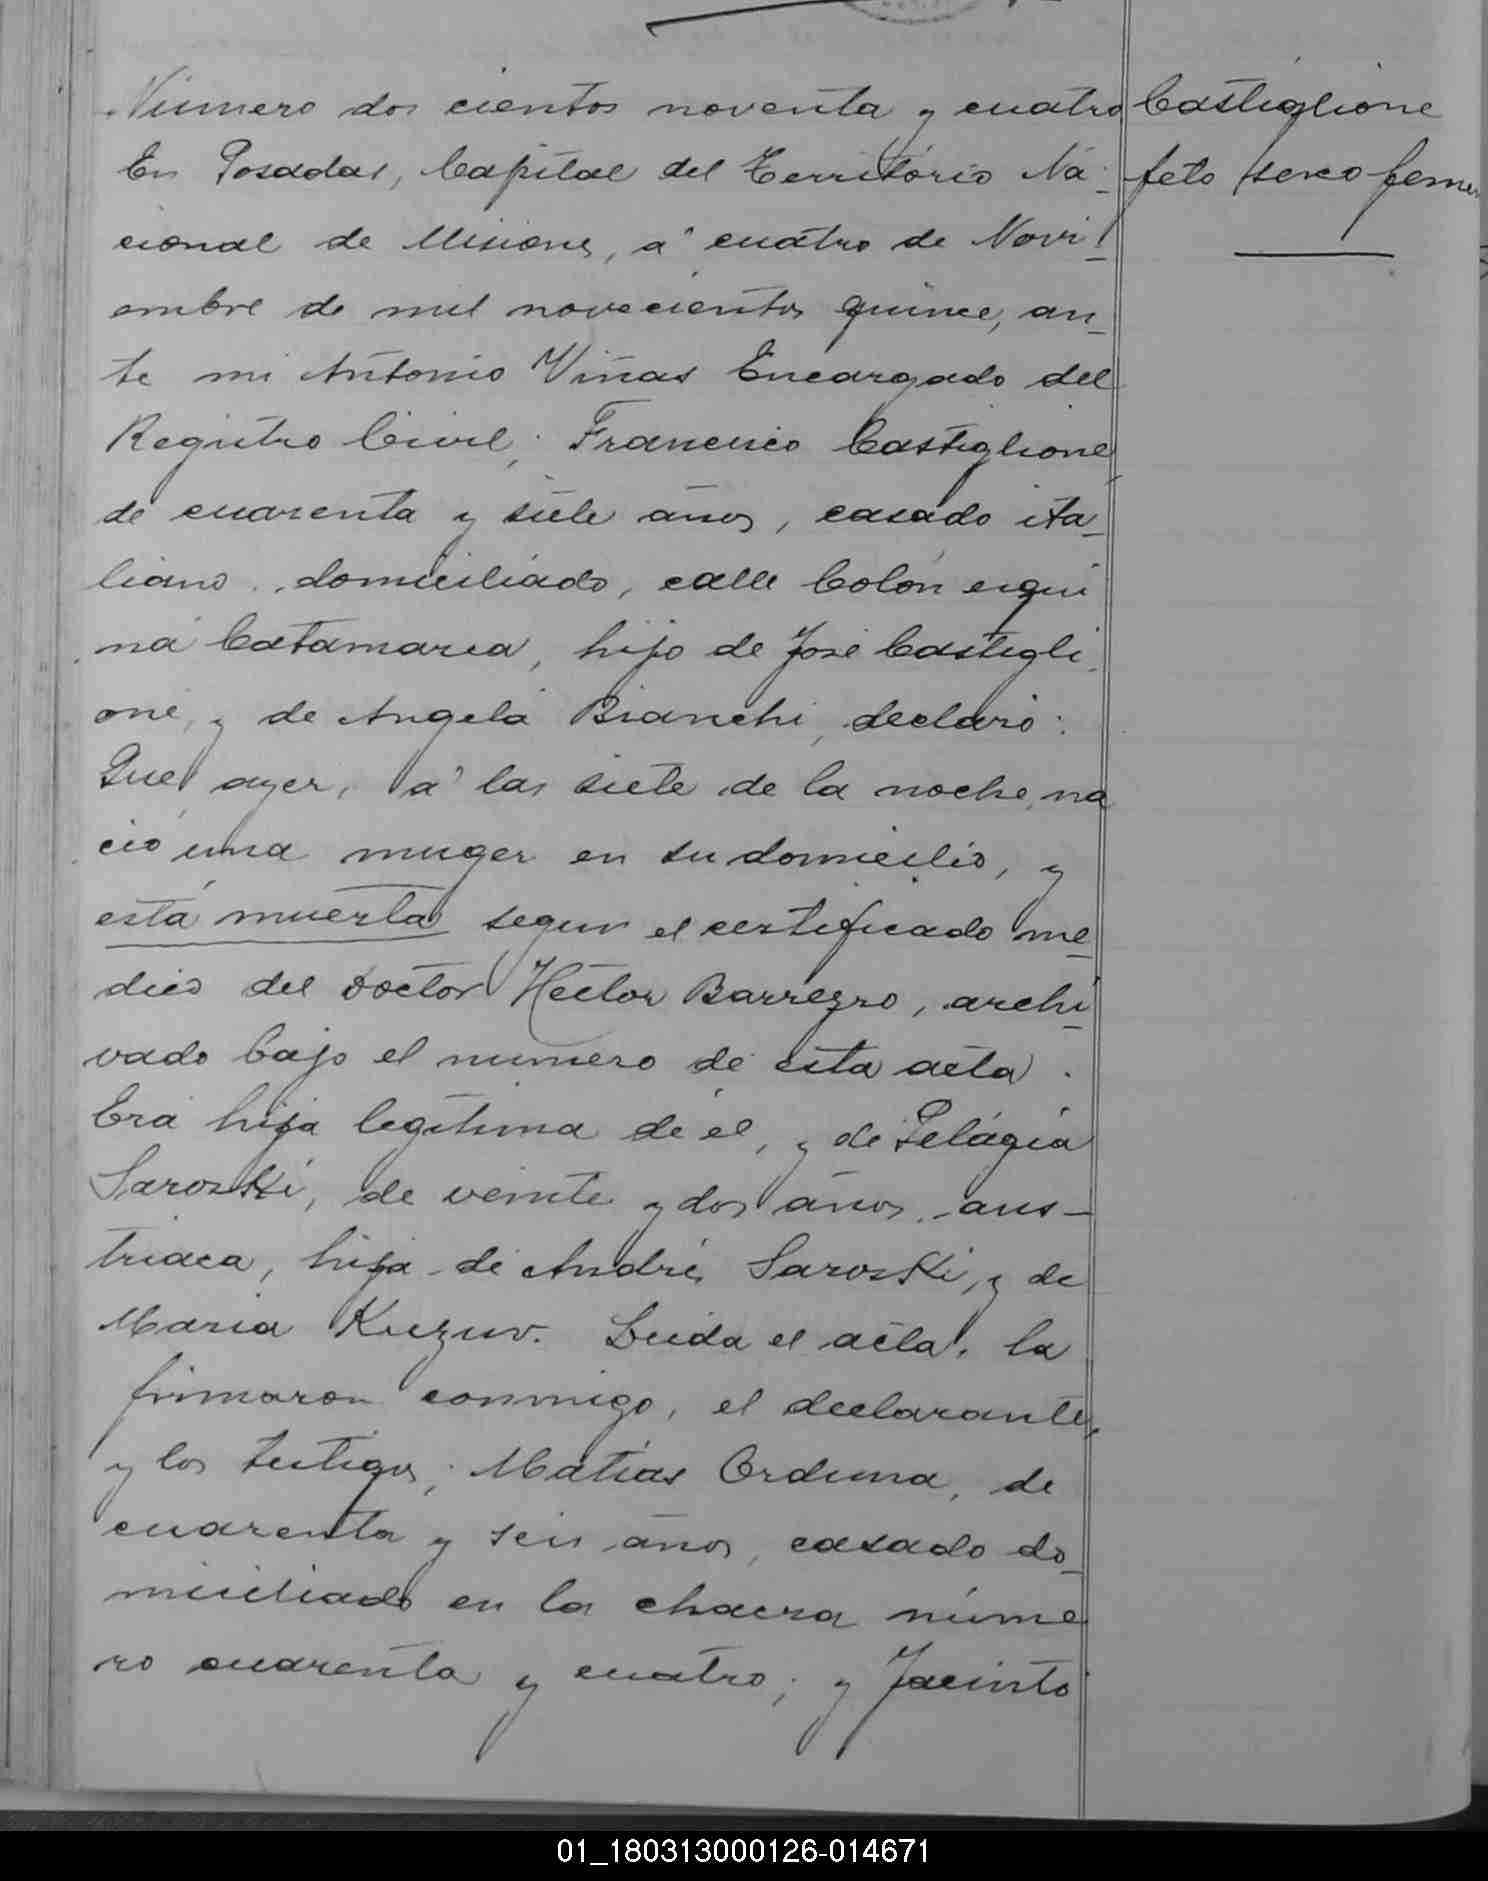 Número dos cientos noventa y cuatro
En Posadas, Capital del Territorio Na-
cional de Misiones, á cuatro de Novi-
embre de mil novecientos quince, an-
te mi Antonio Viñas Encargado del
Registro Civil; Francisco Castiglione,
de cuarenta y siete años, casado ita-
liano, domiciliado, calle Colón esqui
na Catamarca, hijo de José Castigli-
one, y de Angela Bianchi, declaró:
Que ayer, á las siete de la noche, na
ció una muger en su domicilio, y
está muerta segun el certificado me-
dico del Doctor Héctor Barreyro, archi-
vado bajo el numero de esta acta.
Era hija legítima de él, y de Pelágia
Saroski, de veinte y dos años, aus-
triaca, hija de Andrés Saroski, y de
Maria Kuzuv. Leida el acta, la
firmaron conmigo, el declarante,
y los testigos; Matías Orduna, de
cuarenta y seis años, casado do-
miciliado en la chacra núme
ro cuarenta y cuatro; y Jacinto
Castiglione
feto sexo femen
01_180313000126-014671